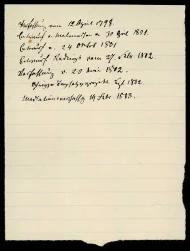 Verfassung vom 12 April 1798.
Entwurf v. Malmaison v. 30 April 1801.
Entwurf v. 24 Oktob 1801
Entwurf Redingt vom 27. Febr 1802.
Verfassung v. 20 Mai 1802.
1802.
Mediationsverfassg 19 Febr 1803.